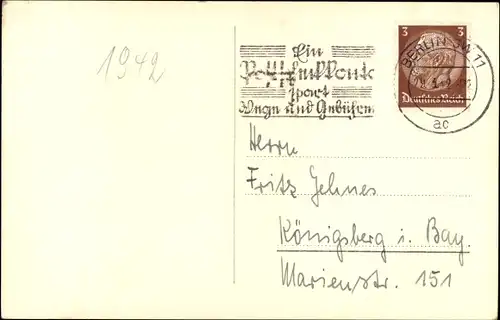 1942
Ein
Postscheckkonto
spart
Wege und Gebühren
3 3
Deutsches Reich
BERLIN SW 11
ac
Herrn
Fritz Jehnes
Königsberg i. Bay.
Marienstr. 151